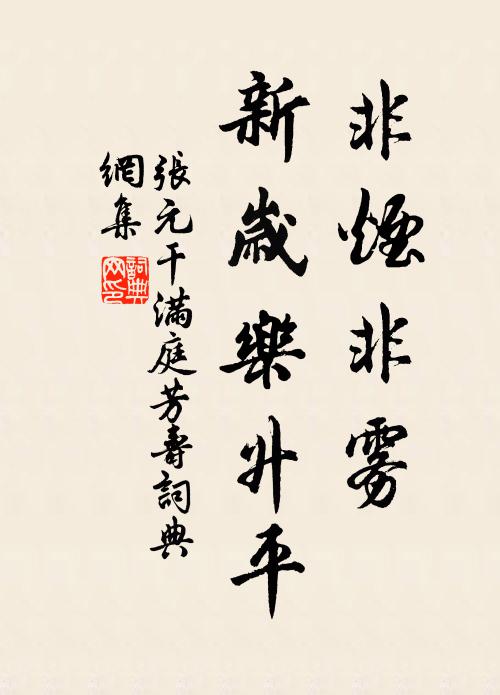 非煙非霧
新歲樂升平
張元干滿庭芳壽詞典
網集
詞典
網印